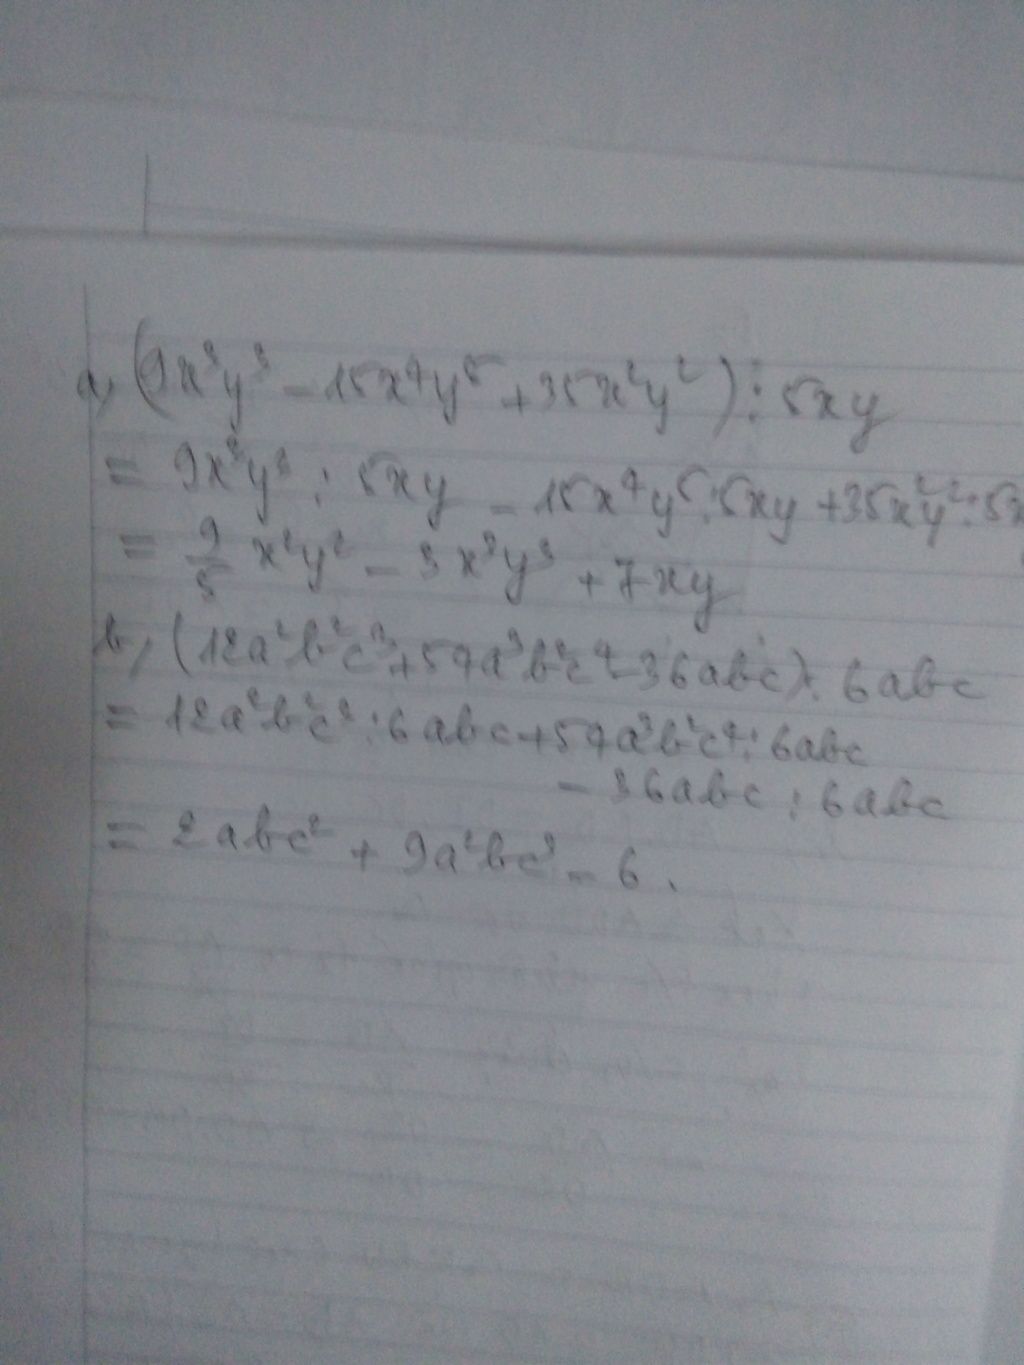 a, (9x³y³ - 15x⁴y⁵ + 35x²y²) : 5xy
= 9x³y³ : 5xy - 15x⁴y⁵ : 5xy + 35x²y² : 5x
= 9/5 x²y² - 3x³y³ + 7xy
b, (12a²b²c³ + 54a³b²c⁴ - 36abc) : 6abc
= 12a²b²c³ : 6abc + 54a³b²c⁴ : 6abc
- 36abc : 6abc
= 2abc² + 9a²bc³ - 6.